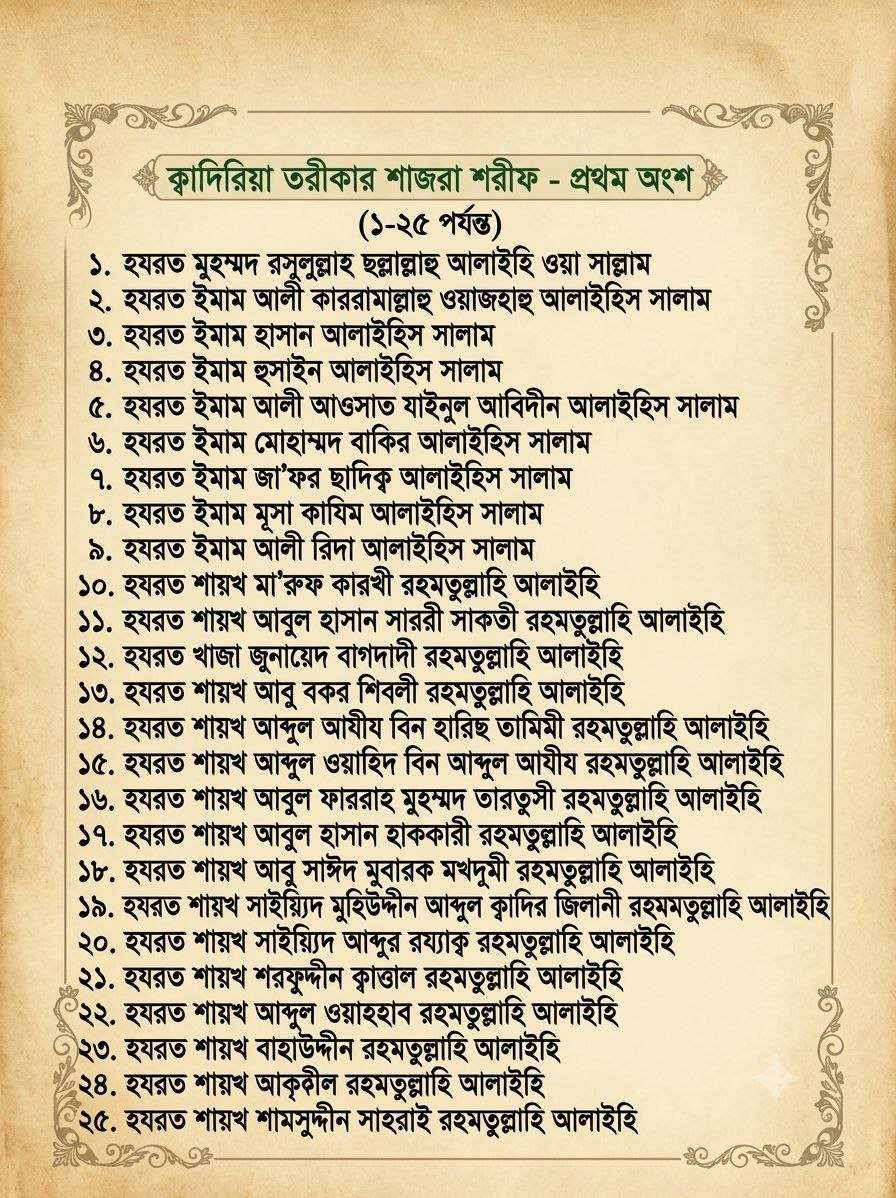 ক্বাদিরিয়া তরীকার শাজরা শরীফ - প্রথম অংশ
(১-২৫ পর্যন্ত)
১. হযরত মুহম্মদ রসুলুল্লাহ ছল্লাল্লাহু আলাইহি ওয়া সাল্লাম
২. হযরত ইমাম আলী কাররামাল্লাহু ওয়াজহাহু আলাইহিস সালাম
৩. হযরত ইমাম হাসান আলাইহিস সালাম
৪. হযরত ইমাম হুসাইন আলাইহিস সালাম
৫. হযরত ইমাম আলী আওসাত যাইনুল আবিদীন আলাইহিস সালাম
৬. হযরত ইমাম মোহাম্মদ বাকির আলাইহিস সালাম
৭. হযরত ইমাম জা’ফর ছাদিক্ব আলাইহিস সালাম
৮. হযরত ইমাম মূসা কাযিম আলাইহিস সালাম
৯. হযরত ইমাম আলী রিদা আলাইহিস সালাম
১০. হযরত শায়খ মা’রুফ কারখী রহমতুল্লাহি আলাইহি
১১. হযরত শায়খ আবুল হাসান সাররী সাকতী রহমতুল্লাহি আলাইহি
১২. হযরত খাজা জুনায়েদ বাগদাদী রহমতুল্লাহি আলাইহি
১৩. হযরত শায়খ আবু বকর শিবলী রহমতুল্লাহি আলাইহি
১৪. হযরত শায়খ আব্দুল আযীয বিন হারিছ তামিমী রহমতুল্লাহি আলাইহি
১৫. হযরত শায়খ আব্দুল ওয়াহিদ বিন আব্দুল আযীয রহমতুল্লাহি আলাইহি
১৬. হযরত শায়খ আবুল ফাররাহ মুহম্মদ তারতুসী রহমতুল্লাহি আলাইহি
১৭. হযরত শায়খ আবুল হাসান হাককারী রহমতুল্লাহি আলাইহি
১৮. হযরত শায়খ আবু সাঈদ মুবারক মখদুমী রহমতুল্লাহি আলাইহি
১৯. হযরত শায়খ সাইয়্যিদ মুহিউদ্দীন আব্দুল ক্বাদির জিলানী রহমমতুল্লাহি আলাইহি
২০. হযরত শায়খ সাইয়্যিদ আব্দুর রয্যাক্ব রহমতুল্লাহি আলাইহি
২১. হযরত শায়খ শরফুদ্দীন ক্বাত্তাল রহমতুল্লাহি আলাইহি
২২. হযরত শায়খ আব্দুল ওয়াহহাব রহমতুল্লাহি আলাইহি
২৩. হযরত শায়খ বাহাউদ্দীন রহমতুল্লাহি আলাইহি
২৪. হযরত শায়খ রহমতুল্লাহি আলাইহি
২৫. হযরত শায়খ শামসুদ্দীন সাহরাই রহমতুল্লাহি আলাইহি